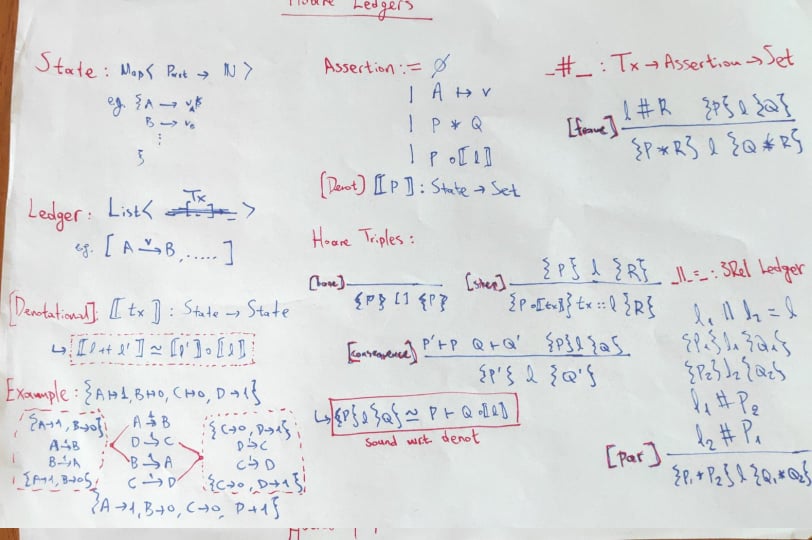 Hoare Ledgers
State : Map< Part → ℕ >
eg. {A → v_A
B → v_B
⋮
}
Ledger : List< Tx >
eg. [ A –v→ B , ..... ]
[Denotational]: ⟦ tx ⟧ : State → State
↳ ⟦ l ++ l' ⟧ ≃ ⟦l'⟧ ∘ ⟦l⟧
Example : {A↦1, B↦0, C↦0, D↦1}
{A↦1, B↦0}
A –1→ B
B –1→ A
{A↦1, B↦0}
A –1→ B
D –1→ C
B –1→ A
C –1→ D
{C↦0, D↦1}
D –1→ C
C –1→ D
{C↦0, D↦1}
{A↦1, B↦0, C↦0, D↦1}
Assertion := ∅
| A ↦ v
| P * Q
| P ∘⟦l⟧
[Denot] ⟦P⟧ : State → Set
Hoare Triples :
[base]
{P} [] {P}
[step] {P} l {R}
{P∘⟦tx⟧} tx :: l {R}
[consequence] P' ⊢ P Q ⊢ Q' {P} l {Q}
{P'} l {Q'}
↳ {P} l {Q} ≃ P ⊢ Q ∘⟦l⟧
sound wrt denot
_#_ : Tx → Assertion → Set
[frame] l # R {P} l {Q}
{P * R} l {Q * R}
_||_=_ : 3Rel Ledger
l₁ || l₂ = l
{P₁} l₁ {Q₁}
{P₂} l₂ {Q₂}
l₁ # P₂
l₂ # P₁
[par]
{P₁ * P₂} l {Q₁ * Q₂}